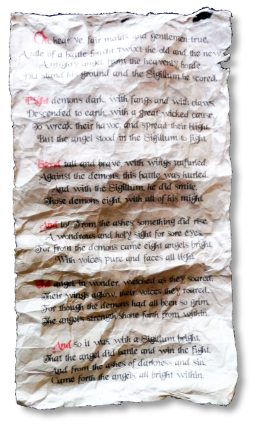 Oh hear ye fair maids and gentlemen true,
A tale of a battle fought twixt the old and the new,
A mighty angel from the heavenly brode
Did stand his ground and the Sigillum he scored.
Eight demons dark, with fangs and with claws
Descended to earth with a great wicked cause,
To wreak their havoc and spread their blight,
But the angel stood in the Sigillum to fight.
Stood tall and brave, with wings unfurled
Against the demons, this battle was hurled.
And with the Sigillum, he did smite
Those demons eight, with all of his might.
And lo! From the ashes something did rise,
A wondrous and holy sight for sore eyes.
For from the demons came eight angels bright,
With voices pure and faces all light.
The angel in wonder, watched as they soared,
Their wings aglow, their voices they roared.
For though the demons had all been so grim,
The angel's strength shone forth from within.
And so it was, with a Sigillum bright,
That the angel did battle and win the fight,
And from the ashes of darkness and sin,
Came forth the angels all bright within.